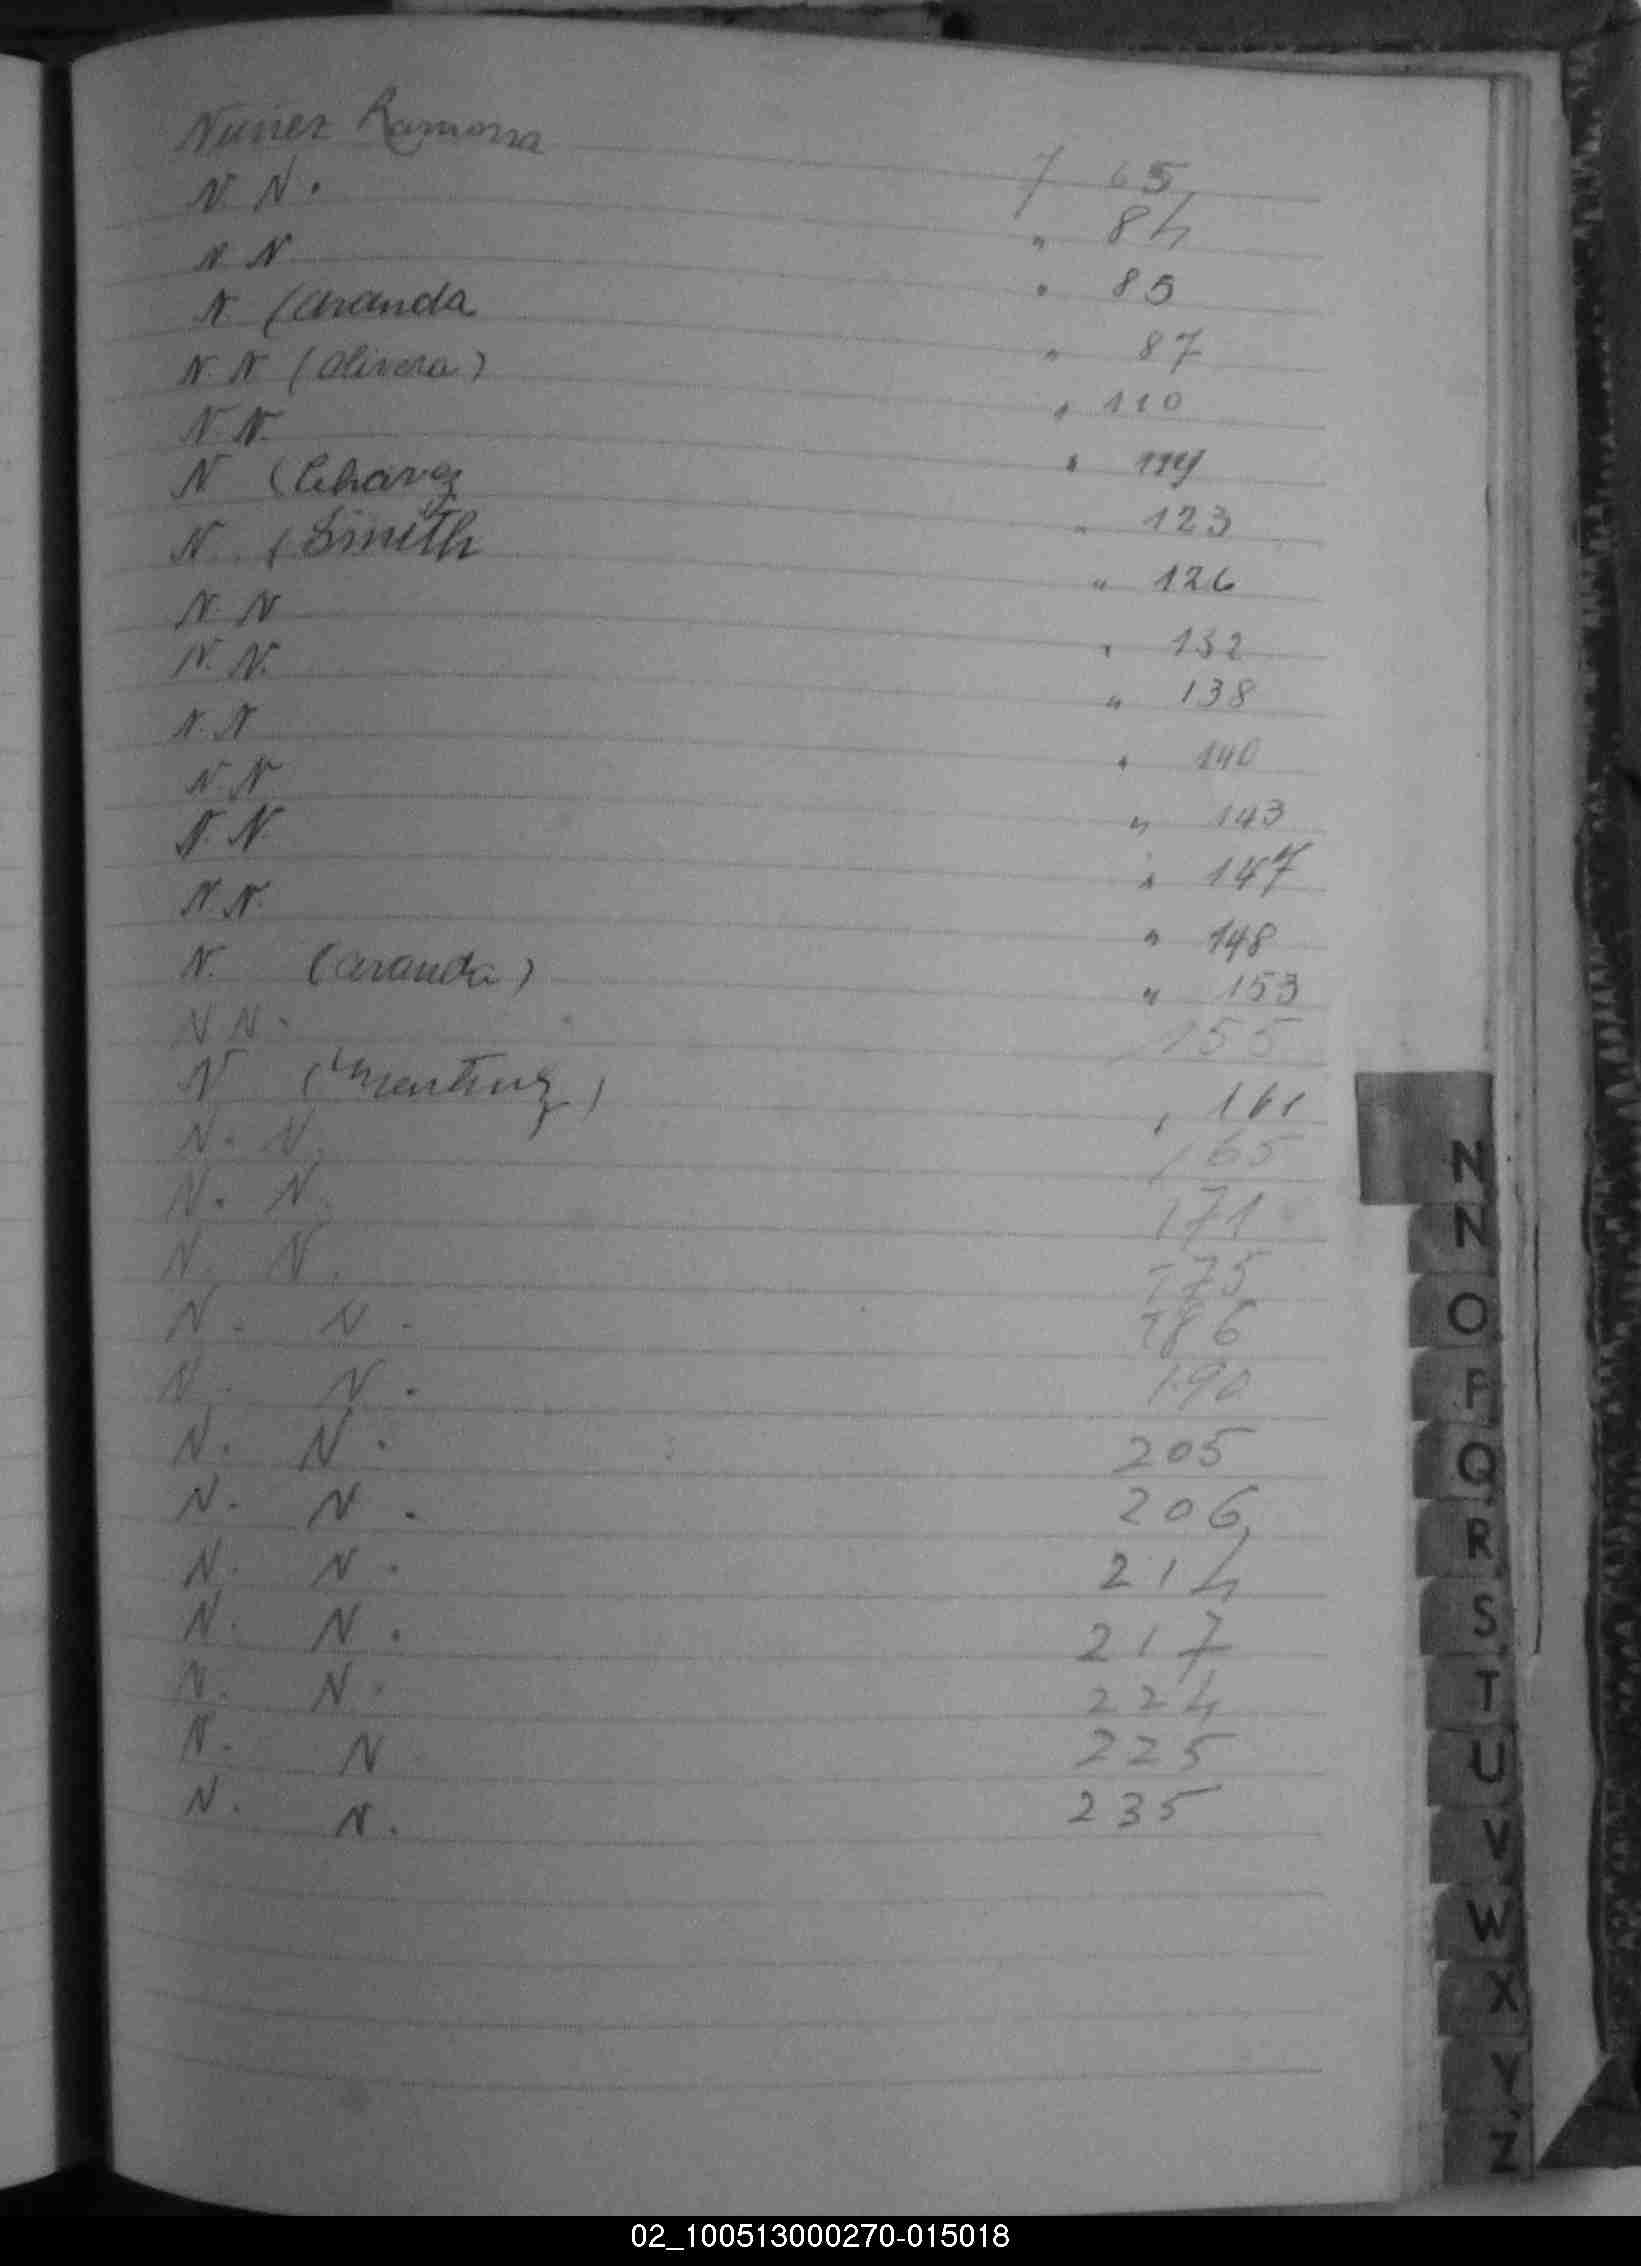 Nunez Ramona 7 65
N N. " 84
N N " 85
N (Aranda " 87
N. N (Olivera) " 110
N N. " 119
N (Chavez " 123
N. (Smith " 126
N. N " 132
N. N. " 138
N. N " 140
N. N " 143
N. N. " 147
N. N. " 148
N. (Aranda) " 153
N N. 155
N ( ) " 161
N. N. 165
N. N. 171
N. N. 175
N. N. 186
N. N. 190
N. N. 205
N. N. 206
N. N. 214
N. N. 217
N. N. 224
N. N 225
N. N. 235
N
N
O
P
Q
R
S
T
U
V
W
X
Y
Z
02_100513000270-015018